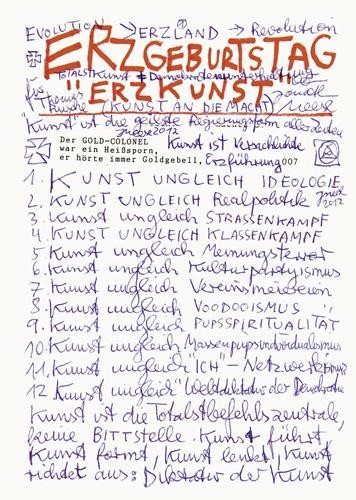 EVOLUTION → ERZLAND → Revolution
ERZGEBURTSTAG
TOTALSTKunst ≠
"ERZKUNST"
für
(KUNST AN DIE MACHT)
"Kunst" ist die geilste Regierungsform aller Zeiten
Meese 2012
Der GOLD-COLONEL
war ein Heißsporn,
er hörte immer Goldgebell,
Kunst ist Verschlinde
Erzführung 007
1. KUNST UNGLEICH IDEOLOGIE
2. KUNST UNGLEICH Realpolitik
Meese 2012
3. Kunst ungleich STRASSENKAMPF
4. KUNST UNGLEICH KLASSENKAMPF
5. Kunst ungleich Meinungsterror
6. Kunst ungleich Kulturpartyismus
7. Kunst ungleich Vereinsmeierein
8. Kunst ungleich VOODOOISMUS
9. Kunst ungleich PUPSSPIRITUALITÄT
10. Kunst ungleich Massenpupsindividualismus
11. Kunst ungleich "ICH" - Netzwerkismus
12 Kunst ungleich "Weltdiktatur der Demokratie
Kunst ist die Totalstbefehlszentrale,
keine BITTSTELLE. Kunst führt,
Kunst formt, Kunst lenkt, Kunst
richtet aus: Diktatur der Kunst